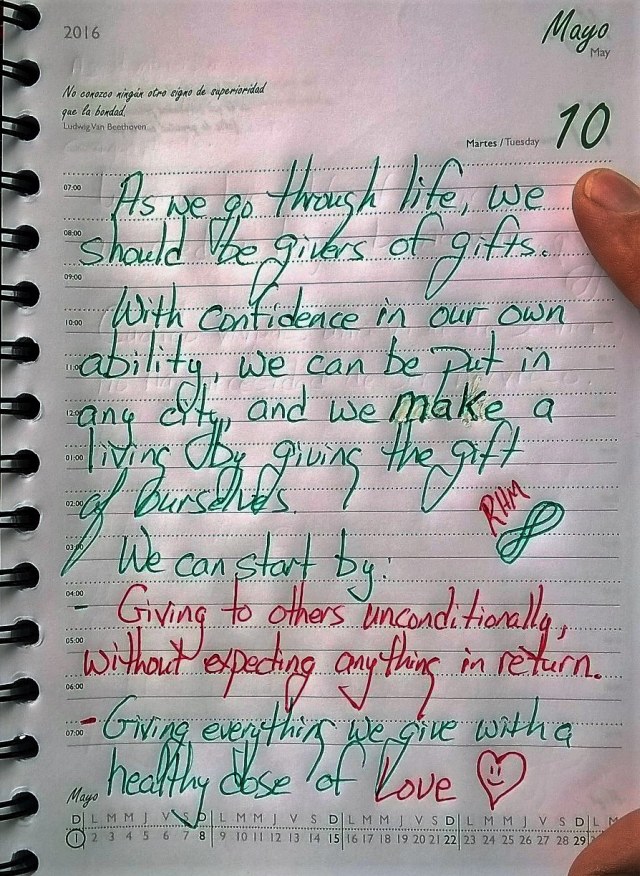 2016
Mayo
May
No conozco ningún otro signo de superioridad
que la bondad.
Ludwig Van Beethoven
Martes / Tuesday
10
07:00
As we go through life, we
08:00
should be givers of gifts.
09:00
10:00
With confidence in our own
11:00
ability, we can be put in
12:00
any city, and we make a
01:00
living by giving the gift
02:00
of ourselves.
RHM
03:00
We can start by:
04:00
- Giving to others unconditionally,
05:00
without expecting anything in return.
06:00
07:00
- Giving everything we give with a
healthy dose of Love
Mayo
D L M M J V S D L M M J V S D L M M J V S D L M M J V S D L M
1 2 3 4 5 6 7 8 9 10 11 12 13 14 15 16 17 18 19 20 21 22 23 24 25 26 27 28 29